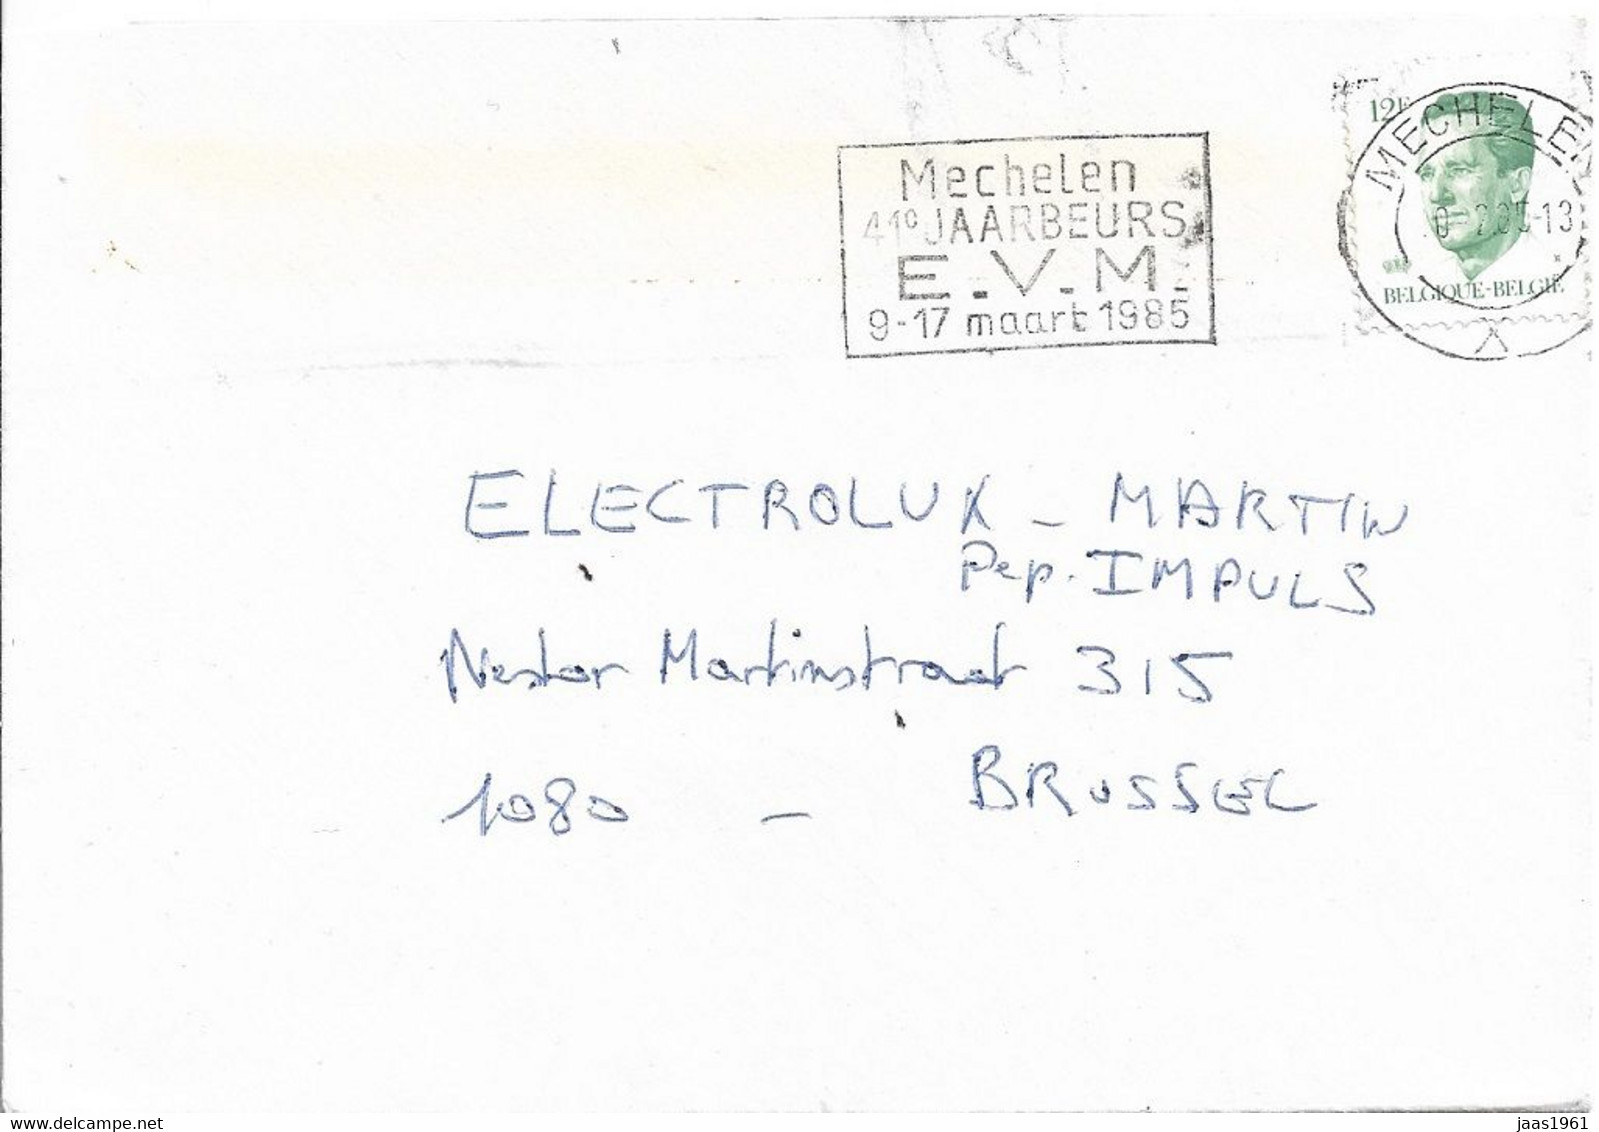 12F
MECHELEN
BELGIQUE-BELGIË
Mechelen
41e JAARBEURS
E.V.M.
9-17 maart 1985
ELECTROLUX - MARTIN
Pep. IMPULS
Nestor Martinstraat 315
1080 - BRUSSEL
delcampe.net
jaas1961